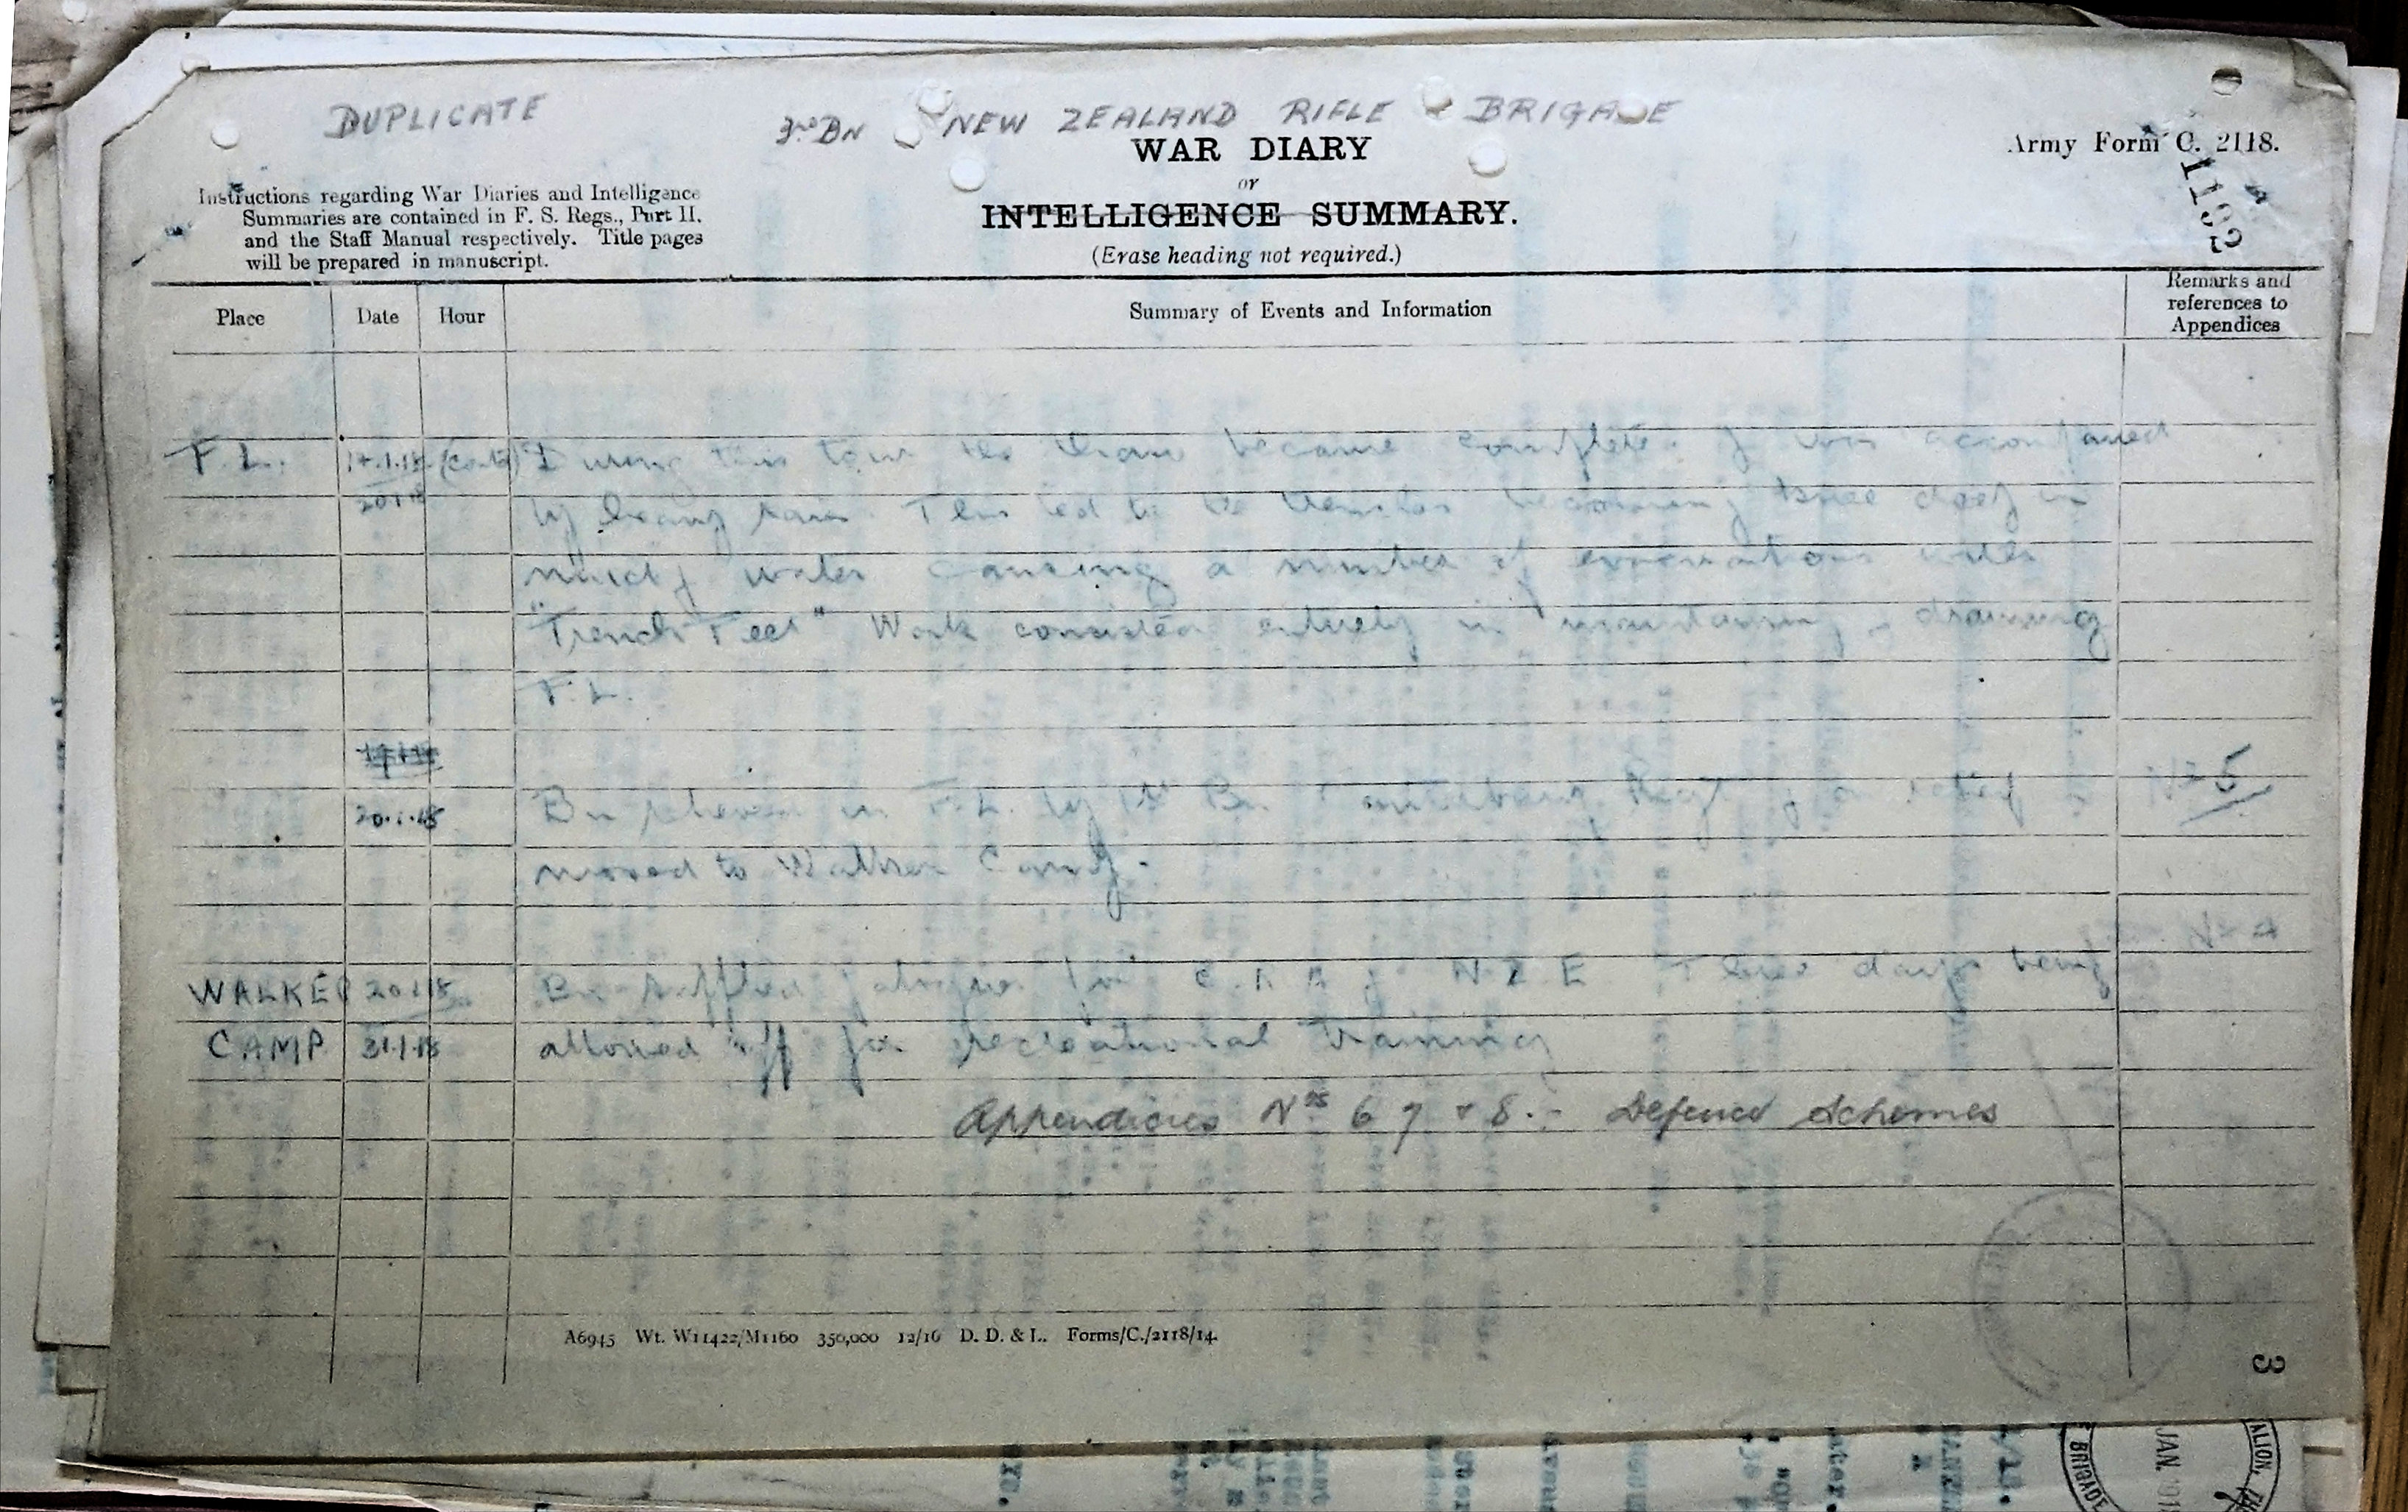 DUPLICATE
3rd BN NEW ZEALAND RIFLE BRIGADE
WAR DIARY
or
INTELLIGENCE SUMMARY.
(Erase heading not required.)
Army Form C. 2118.
1192
Instructions regarding War Diaries and Intelligence
Summaries are contained in F. S. Regs., Part II.
and the Staff Manual respectively. Title pages
will be prepared in manuscript.
Place Date Hour Summary of Events and Information Remarks and
references to
Appendices
F.L. 14.1.18 (contd) During this tour the thaw became complete & was accompanied
20.1.18 by heavy rain. This led to the trenches becoming knee deep in
muddy water causing a number of evacuations with
"Trench Feet" Work consisted entirely in maintaining & draining
F.L.
20.1.18 Bn relieved in F.L. by 1st Bn Canterbury Regt & on relief 5
moved to Walker Camp.
WALKER 20.1.18 Bn supplied fatigues for & N.Z.E. Three days being
CAMP 31.1.18 allowed off for recreational training
Appendicies Nos 6 7 & 8.- Defence Schemes
A6945 Wt. W11422/M1160 350,000 12/16 D. D. & L. Forms/C./2118/14.
3
BRIGADE
JAN.